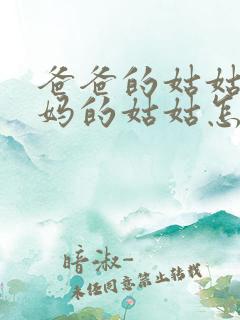 爸爸的姑姑
妈的姑姑怎
暗淑-
未经同意禁止转载